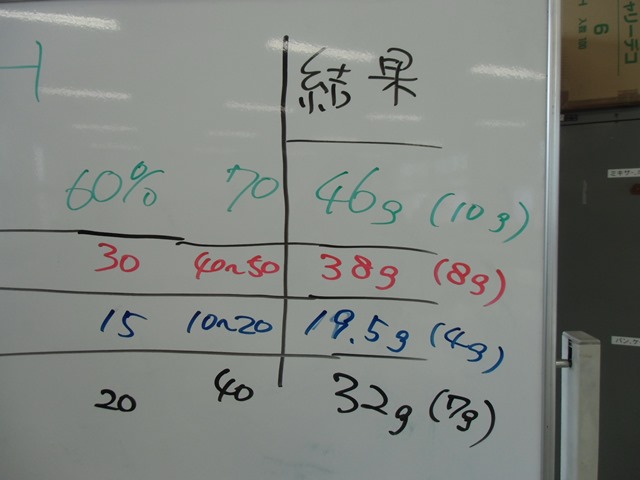 結果
60% 70 46g (10g)
30 40~50 38g (8g)
15 10~20 19.5g (4g)
20 40 32g (7g)
ャリーデコ
6